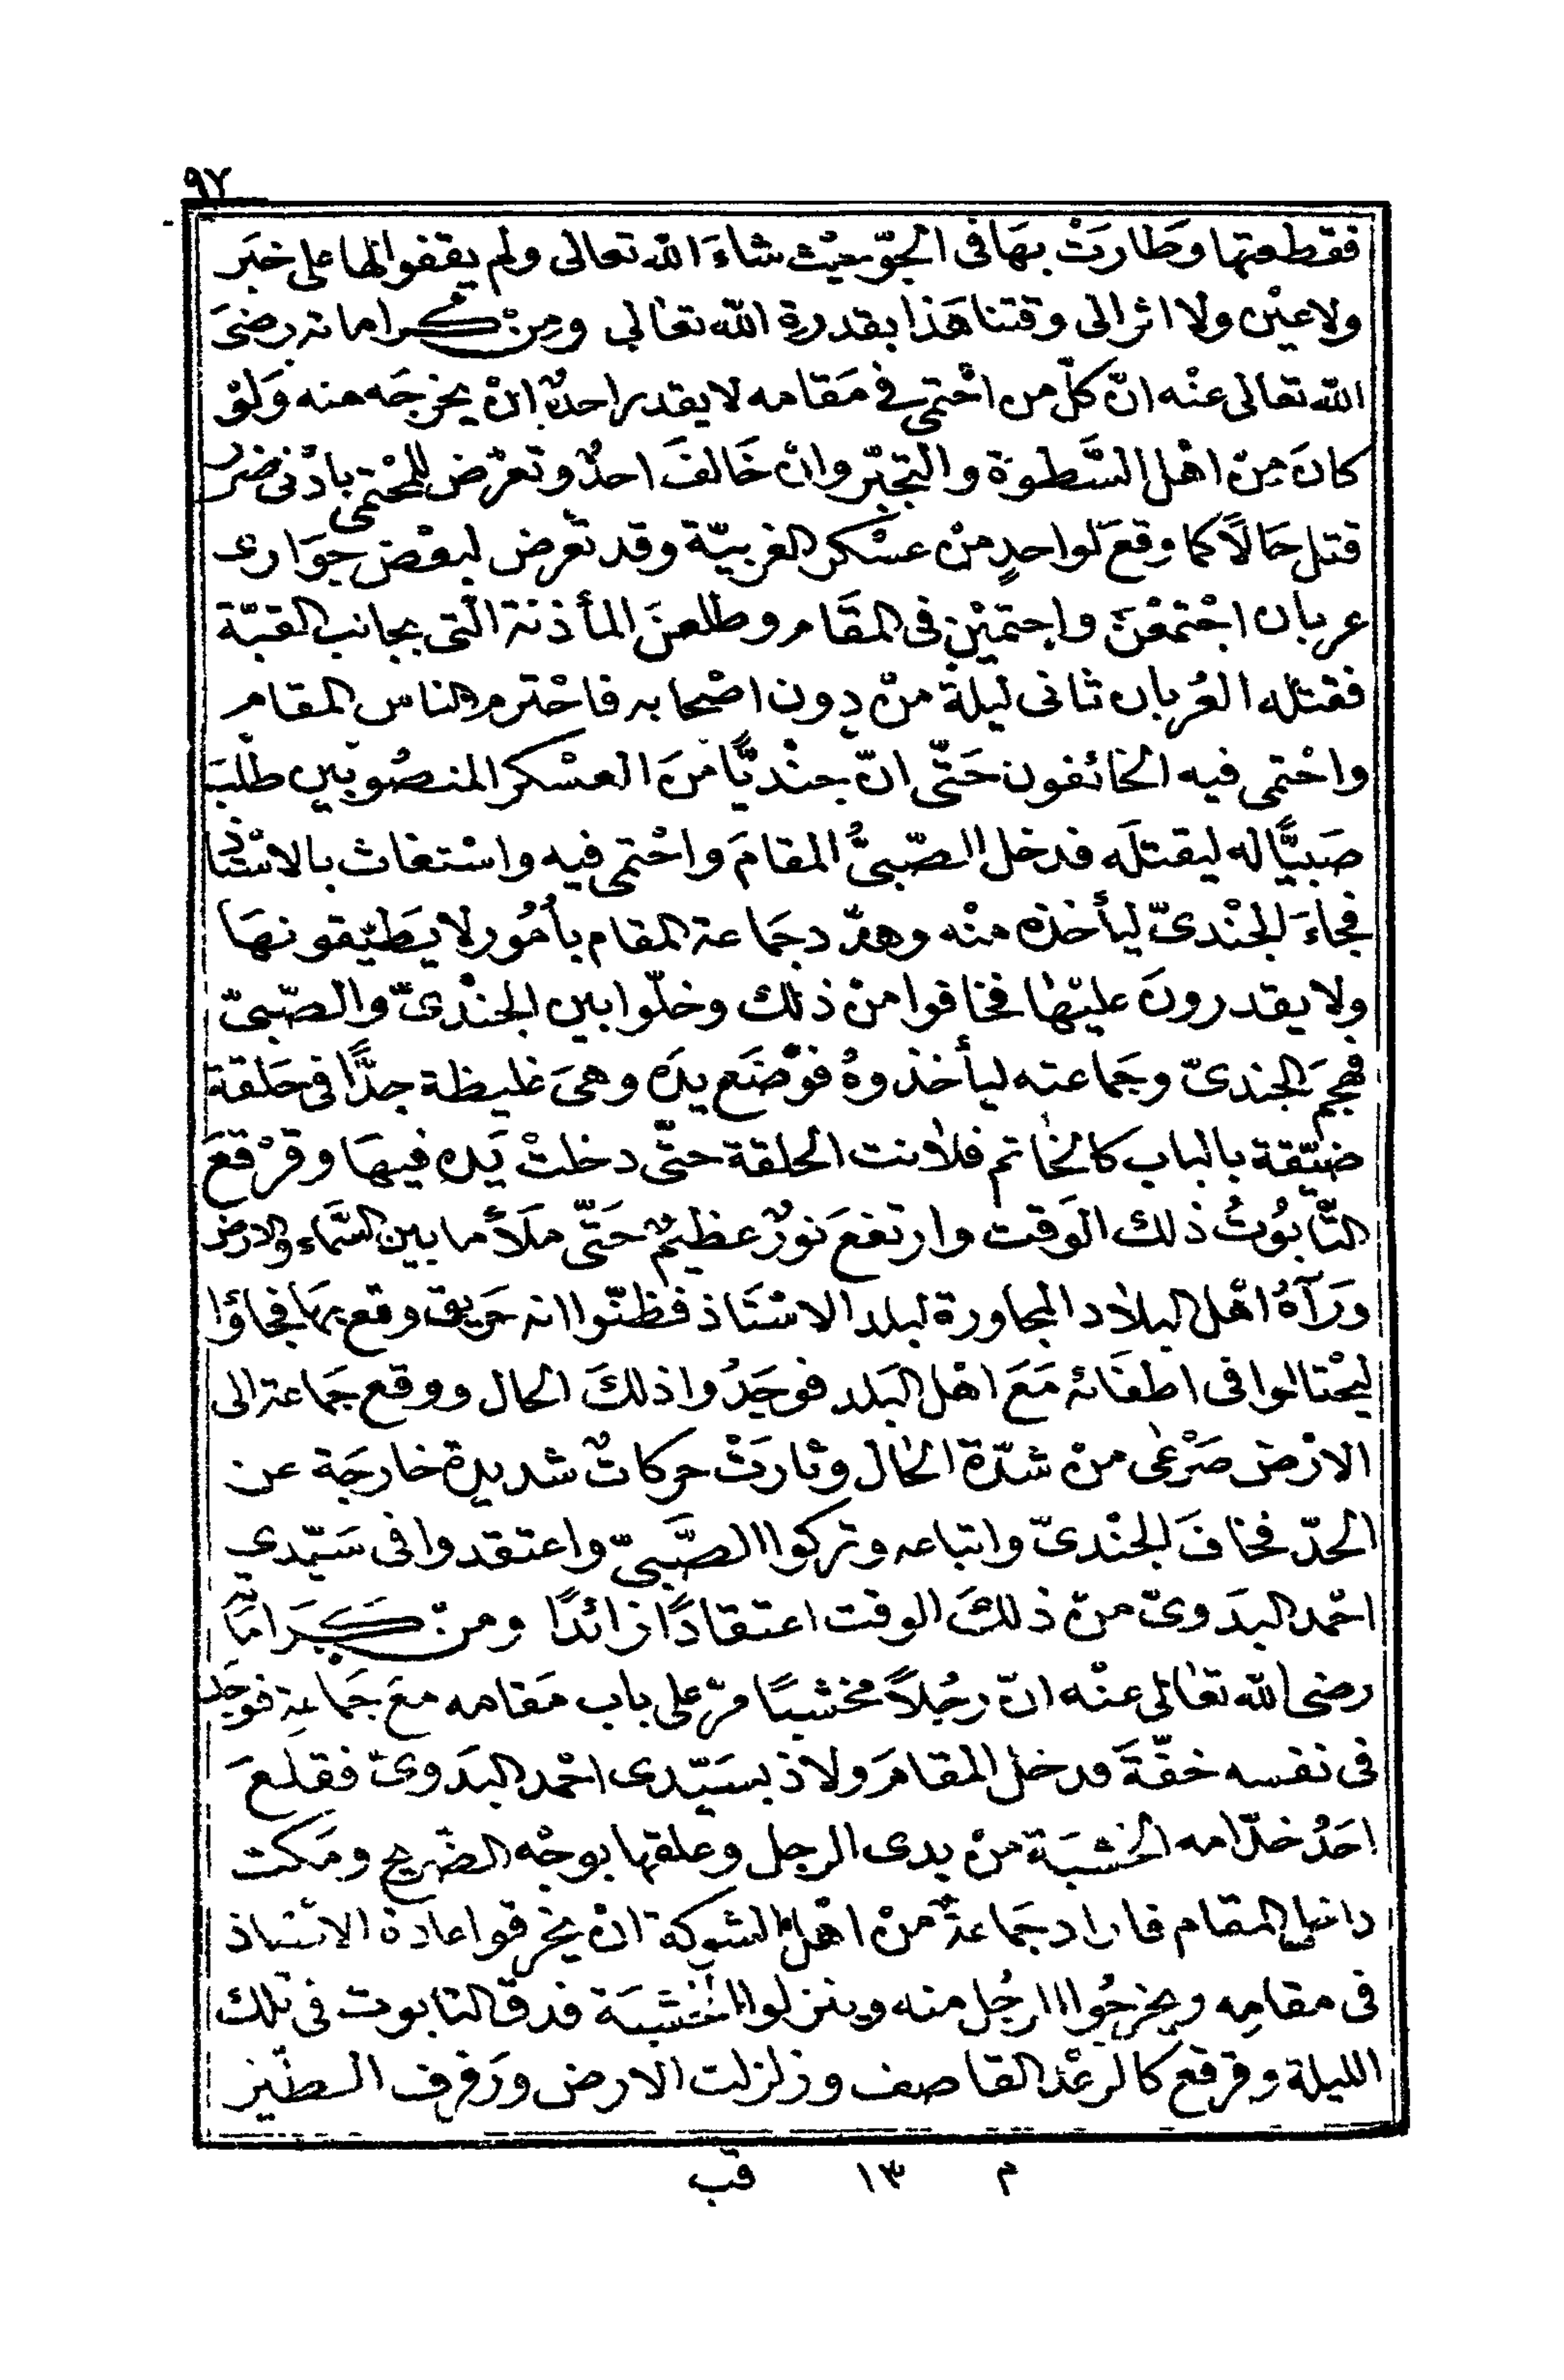 ٩٧
فقطعتها وَطارَتْ بهَا فى الجوّ بحيْث شاءَ الله تعالى ولم يقفوا لها على خبَر
ولا عيْن ولا اثر الى وقتنا هَذا بقدرة الله تعالى ومِنْ كراماته رضىَ
الله تعالى عنْه انّ كلّ من احْتمى فى مَقامه لا يقدر احدٌ انْ يخرجَه منه وَلوْ
كانَ مِنْ اهْل السَّطوَة والتجبّر وانْ خَالفَ احدٌ وتعرّض للمحْتمى بادْنى ضرر
قتل حَالاً كما وقعَ لواحدٍ منْ عسْكر الغربيّة وقد تعرّض لبعْض جوَارى
عربان اجْتمعْنَ واحتميْن فى المقَام وطلعنَ المأذنة الّتى بجانب القبّة
فقتله العُربان ثانى ليلة منْ دون اصْحابه فاحْترم الناس المقام
واحْتمى فيه الخائفون حَتّى انّ جنْديًّا منَ العسْكر المنصُوبين طلبَ
صَبيًّا له ليقتلَه فدخل الصّبىُّ المقامَ واحْتمى فيه واسْتغاث بالاسْتاذ
فجاءَ الجنْدىّ ليأخذه منْه وهدّد جمَاعة المقام بأمُور لا يَطيْقونهَا
ولا يقدرونَ عليْها فخافوا منْ ذلك وخلّوا بين الجنْدىّ والصّبىّ
فهجمَ الجندىّ وجمَاعته ليأخذوهُ فوَضَع يدَه وهىَ غليظة جدًّا فى حَلقة
ضيّقة بالباب كالخاتم فلانت الحلقة حتّى دخلتْ يَده فيهَا وقرْقعَ
التّابُوتُ ذلك الوَقت وارتفعَ نورٌ عظيمٌ حَتّى مَلأَ ما بين السّماء والارض
ورَآهُ اهْل البلاد المجاورة لبلد الاسْتَاذ فظنّوا انه حَريق وقع بهَا فجاؤا
ليحْتالوا فى اطفَائه مَعَ اهْل البَلد فوجَدُوا ذلكَ الحال ووقع جمَاعة الى
الارْض صَرْعٰى منْ شدّة الحال وثارَتْ حركاتٌ شديدة خارجَة عن
الحدّ فخافَ الجنْدىّ واتباعه وتركوا الصَّبىّ واعتقدوا فى سَيّدي
احْمد البدَوىّ منْ ذلكَ الوقت اعتقادًا زائدًا ومنْ كَرَاماته
رضى الله تعالى عنْه انّ رجُلاً مخشبًا مرّ على باب مَقامه معَ جمَاعةٍ فوجَد
فى نفسه خفّةَ فدخل المقامَ ولاذ بسَيّدى احْمد البَدَوىّ فقلعَ
احَدُ خدّامه الخشبَة منْ يدى الرجل وعلقها بوجْه الضّريح ومَكت
داخل المقام فاراد جمَاعةٌ منْ اهْل الشوكة انْ يخرقوا عادة الاسْتاذ
فى مقامِه ويخرجُوا الرجُل منه وينزلوا الخشَبَة فدقّ التابوت فى تلك
الليلة وقرقع كالرعْد القاصف وزلزلت الارض ورَفرف الطيْر
م ١٣ قب